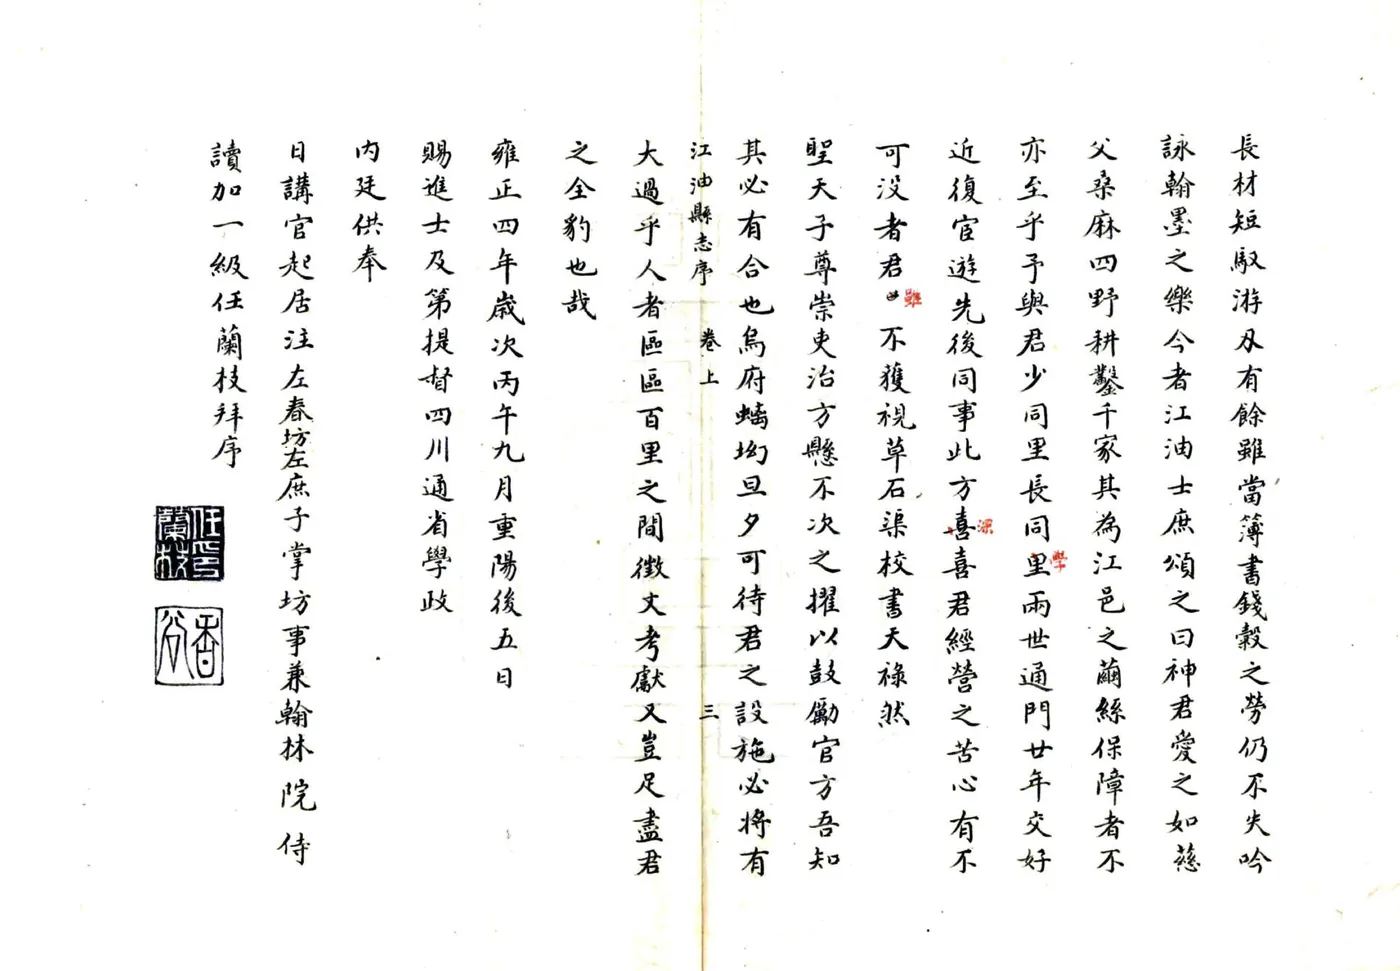 長材短馭游刃有餘雖當簿書錢穀之勞仍不失吟
詠翰墨之樂今者江油士庶頌之曰神君愛之如慈
父桑麻四野耕鑿千家其為江邑之繭絲保障者不
亦至乎予與君少同里長同里兩世通門廿年交好
學
近復宦遊先後同事此方喜喜君經營之苦心有不
深
可没者君 不獲視草石渠校書天祿然
雖
聖天子尊崇吏治方懸不次之擢以鼓勵官方吾知
其必有合也烏府螭坳旦夕可待君之設施必將有
江油縣志序 卷上 三
大過乎人者區區百里之間徵文考獻又豈足盡君
之全豹也哉
雍正四年歲次丙午九月重陽後五日
賜進士及第提督四川通省學政
内廷供奉
日講官起居注左春坊左庶子掌坊事兼翰林院侍
讀加一級任蘭枝拜序
任蘭枝印
香谷